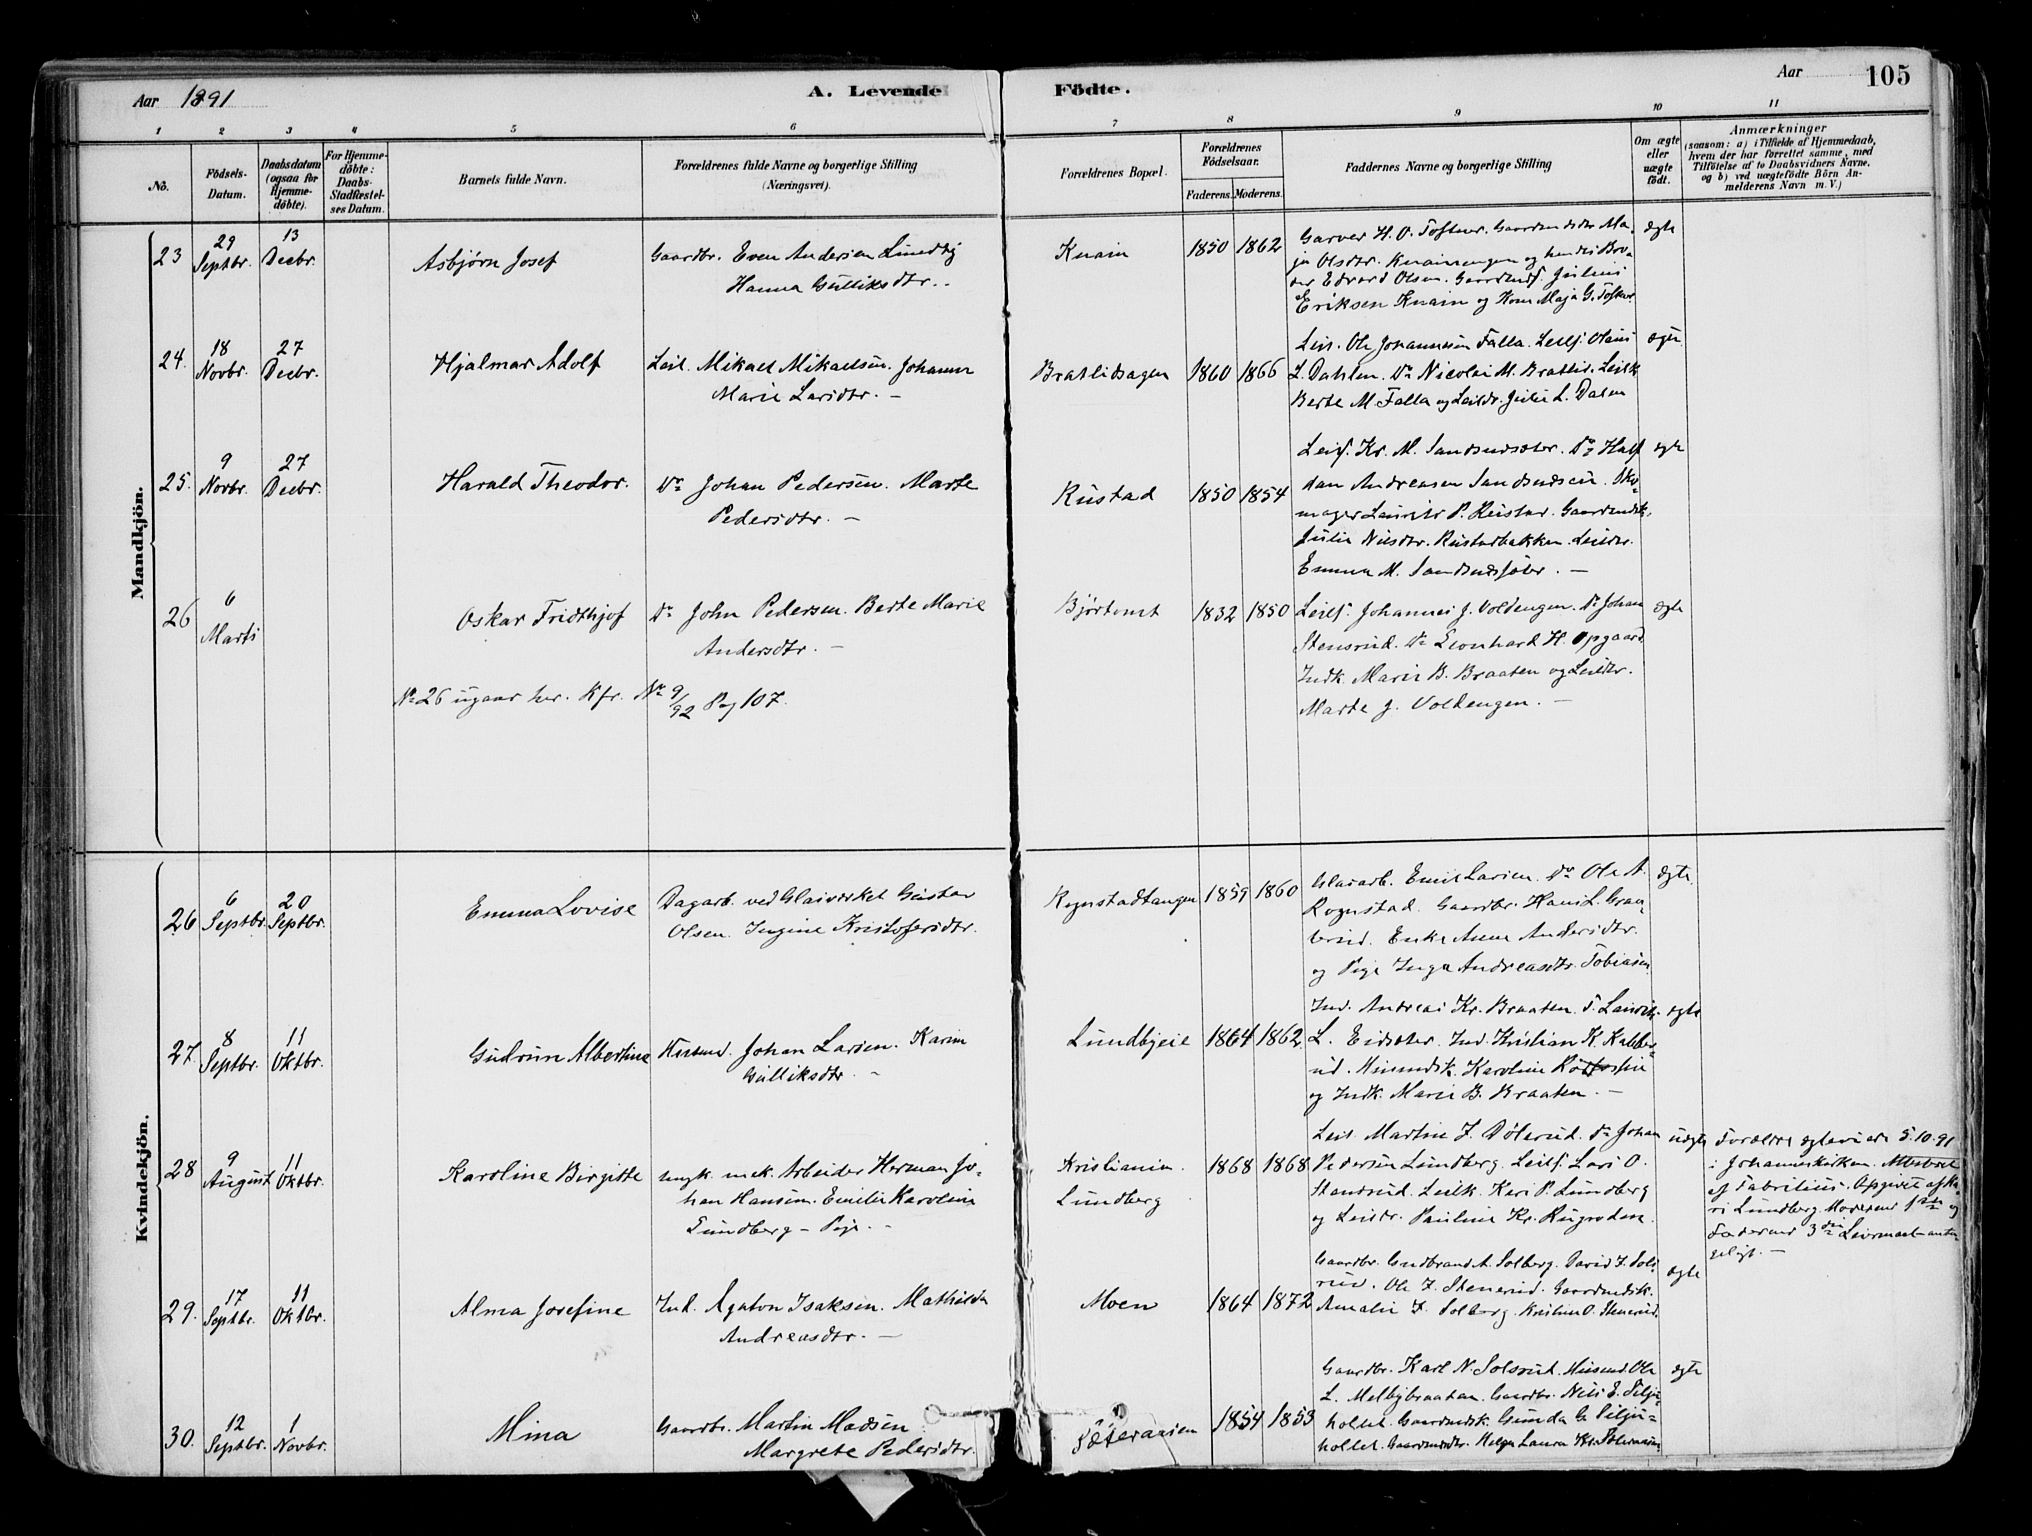 Aar 1891
A. Levende Födte.
Aar
105
1 2 3 4 5 6 7 8 9 10 11
No.
Födsels-Datum.
Daabsdatum (ogsaa for Hjemme-döbte).
For Hjemme-döbte: Daabs-Stadfæstel-ses Datum.
Barnets fulde Navn.
Forældrenes fulde Navne og borgerlige Stilling (Næringsvei).
Forældrenes Bopæl.
Forældrenes Födselsaar.
Faderens. Moderens.
Faddernes Navne og borgerlige Stilling
Om ægte eller uægte födt.
Anmærkninger
(saasom: a) i Tilfælde af Hjemmedaab,
hvem der har forrettet samme, med
Tilföielse af to Daabsvidners Navne,
og b) ved uægtefödte Börn An-
melderens Navn m. V.)
Mandkjön.
23 29 Septbr. 13 Decbr. Asbjørn Josef
Gaardbr. Even Andersen Lundby
Hanna Gulliksdtr.
Knain 1850 1862
Garver H. O. Toftner. Gaardmdsdtr. Ma-
ja Olsdtr. Knainengen og hendes Bro-
der Edvard Olsen. Gaardmdf. Julius
Eriksen Knain og Kone Maja G. Toftner
ægte
24. 18 Novbr. 27 Decbr. Hjalmar Adolf
Leil. Mikael Mikaelsen. Johanne
Marie Larsdtr. —
Bratlidsagen 1860 1866
Leil. Ole Johannesen Falla. Leilf. Olaus
L. Dahlen. Do Nicolai M. Bratlid. Leilk.
Berte M. Falla og Leildr. Julie L. Dalen
ægte.
25. 9 Novbr. 27 Decbr. Harald Theodor.
Do Johan Pedersen. Marte
Pedersdtr. —
Rustad 1850 1854
Leilf. Kr. M. Sandsndsæter. Do Half
dan Andreasen Sandsnæseie. Sko-
mager Laurits P. Rustad. Gaardmdsk.
Julie Nilsdtr. Rustadbakken. Leildr.
Emma M. Sandsnæsjøbr. —
ægte
26 6 Marts Oskar Fridthjof
Do John Pedersen. Berte Marie
Andersdtr. —
Bjørtomt 1832 1850
Leilf. Johannes J. Voldengen. Do Johan
Stensrud. Do Leonhard H. Opgaard
Indk. Marie B. Braaten og Leildtr.
Marte J. Voldengen. —
ægte
No 26 ugaar her. Kfr. No 9/92 Pag 107.
Kvindekjön.
26 6 Septbr. 20 Septbr. Emma Lovise
Dagarb. ved Glasværket Gustav
Olsen. Ingine Kristofersdtr.
Rognstadtangen 1859 1860
Glasarb. Emil Larsen. Do Ole A.
Rognstad. Gaardbr. Hans L. Graa-
berud. Enke Anne Andersdtr.
og Pige Inga Andreasdtr. Tobiasen
ægte.
27. 8 Septbr. 11 Oktbr. Gudrun Albertine
Husmd. Johan Larsen. Karin
Gulliksdtr. —
Lundbyeie 1864 1862
Ind. Andreas Kr. Braaten. T. Laurits
L. Eidsæter. Ind. Kristian K. Kabber-
ud. Husmdsk. Karoline
og Indk. Marie B. Braaten. —
ægte
28 9 August 11 Oktbr. Karoline Birgitte
ungk. mek. Arbeider Herman Jo-
han Hansen. Emilie Karoline
Lundberg — Pige. —
Kristiania.
Lundberg
1868 1868
Leil. Martin J. Dølerud. Do Johan
Pedersen Lundberg. Leilf. Lars O.
Stensrud. Leilk. Kari P. Lundberg
og Leildr. Pauline Kr. Rugroden.
uægte
Forældre egtevieve 5.10.91
i Johanneskirken. Attesteret
af Fabritius. Opgivet af Ka-
ri Lundberg. Moderens 1ste og
Faderens 3die Leiermaal — antag-
eligt. —
29. 17 Septbr. 11 Oktbr. Alma Josefine
Ind. Agaton Isaksen. Mathilde
Andreasdtr. —
Moen 1864 1872
Gaardbr. Gudbrand A. Solberg. David J. Sols-
rud. Ole J. Stenerud. Gaardmdsk.
Amalie J. Solberg. Kristine O. Stenerud.
ægte
30. 12 Septbr. 1 Novbr. Mina
Gaardbr. Martin Madsen
Margrete Pedersdtr.
Sæteraasen 1854 1853
Gaardbr. Karl N. Solsrud. Husmd. Ole
L. Melbybraatan. Gaardbr. Nils E. Silju-
holtet. Gaardmdsk. Gunda G. Silju-
holtet. Gaardmdsdtr. Helga Laura Kr. Sæteraasen
ægte